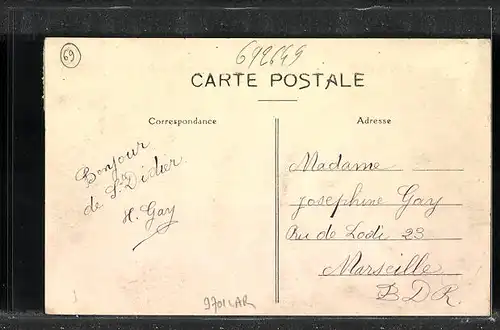 69
692649
CARTE POSTALE
Correspondance
Adresse
Bonjour
de St Didier
H. Gay
Madame
Josephine Gay
Rue de Lodi 23
Marseille
B D R.
9701LAR